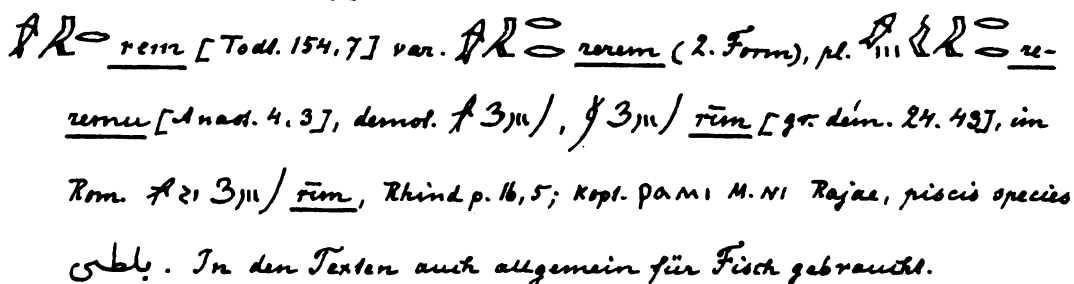 rem [Todt. 154,7] var. rerem (2. Form), pl. re-
remu [Anast. 4.3], demot. rīm [gr. dém. 24. 49], im
Rom. rīm, Rhind p. 16,5; kopt. ⲣⲁⲙⲓ M. ⲛⲓ Rajae, piscis species
بلطى. In den Texten auch allgemein für Fisch gebraucht.